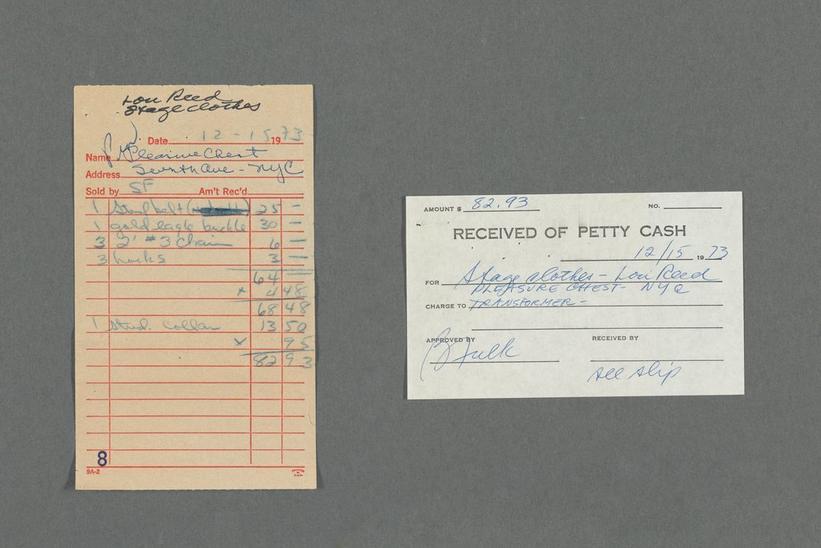 Lou Reed
Stage clothes
Date 12-15 1973
Name Pleasure Chest
Address Seventh Ave - NYC
Sold by SF Am't Rec'd
1 Stud belt 25 —
1 gold eagle buckle 30 —
3 2' #3 chain 6 —
3 hooks 3 —
64
x 4 48
68 48
1 Stud. Collar 13 50
x 95
82 93
8
9A-2
AMOUNT $ 82.93 NO.
RECEIVED OF PETTY CASH
12/15 1973
FOR Stage clothes - Lou Reed
PLEASURE CHEST - NYC
CHARGE TO TRANSFORMER -
APPROVED BY RECEIVED BY
B Falk
see slip